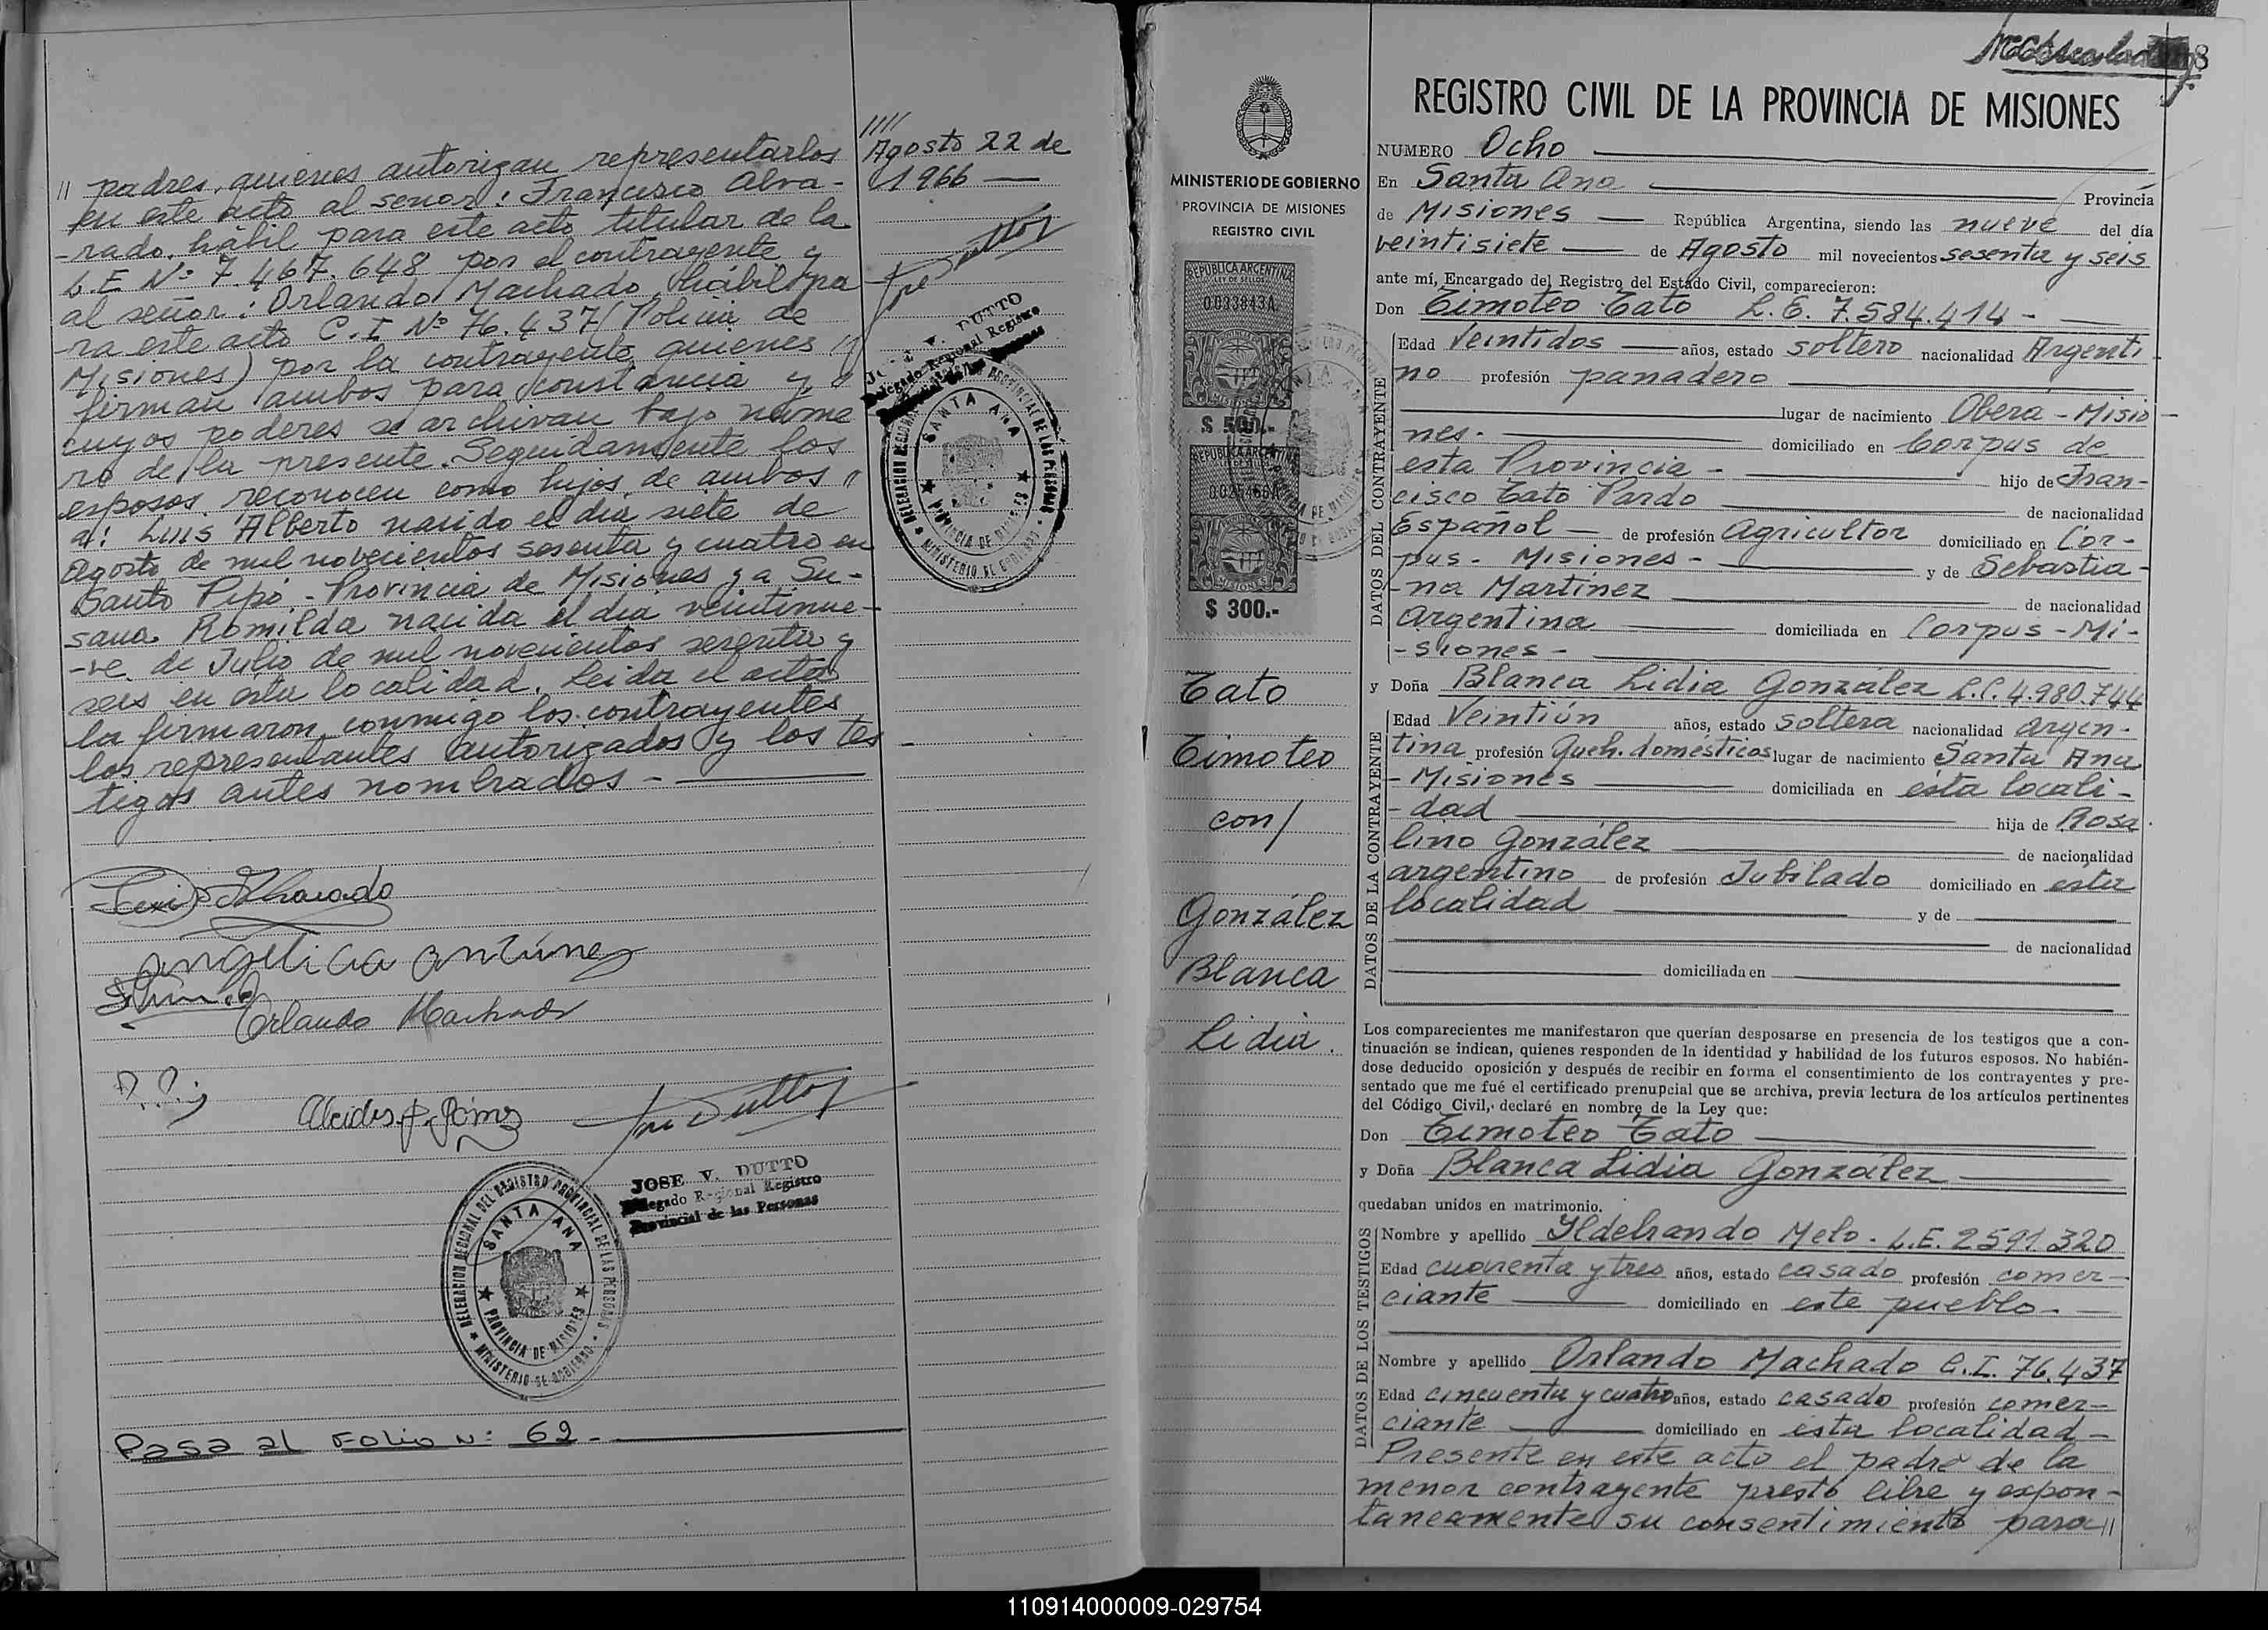 // padres, quienes autorizan representarlos
en este acto al señor: Francisco Alva-
-rado, hábil para este acto titular de la
L.E Nº 7.467.648 por el contrayente y
al señor: Orlando Machado (hábil pa
-ra este acto C.I Nº 76.437 (Policia de
Misiones) por la contrayente, quienes //
firman ambos para constancia y //
cuyos poderes se archivan bajo núme
ro de la presente. Seguidamente los
esposos reconocen como hijos de ambos //
a: Luis Alberto nacido el día siete de
Agosto de mil novecientos sesenta y cuatro en
Santo Pipó - Provincia de Misiones y a Su-
sana Romilda nacida el día veintinue-
-ve de Julio de mil novecientos sesenta y
seis en ésta localidad. Leida el acta
la firmaron conmigo los contrayentes
los representantes autorizados y los tes
tigos antes nombrados. -
////
Agosto 22 de
1966 —
DUTTO
Delegado Regional Registro
DELEGACION REGIONAL DEL REGISTRO PROVINCIAL DE LAS PERSONAS
SANTA ANA
PROVINCIA DE MISIONES
MINISTERIO DE GOBIERNO
Alvarado
Angelica Antúnez
Orlando Machado
Alcides F. Gómez
JOSE V. DUTTO
Delegado Regional Registro
Provincial de las Personas
DELEGACION REGIONAL DEL REGISTRO PROVINCIAL DE LAS PERSONAS
SANTA ANA
PROVINCIA DE MISIONES
MINISTERIO DE GOBIERNO
Pasa al Folio Nº: 62.-
8
MINISTERIO DE GOBIERNO
PROVINCIA DE MISIONES
REGISTRO CIVIL
REPUBLICA ARGENTINA
LEY DE SELLOS
0033843A
MISIONES
$ 500.-
REPUBLICA ARGENTINA
MISIONES
$ 300.-
Tato
Timoteo
con/
González
Blanca
Lidia.
REGISTRO CIVIL DE LA PROVINCIA DE MISIONES
NUMERO Ocho
En Santa Ana Provincia
de Misiones — República Argentina, siendo las nueve del día
veintisiete — de Agosto mil novecientos sesenta y seis
ante mí, Encargado del Registro del Estado Civil, comparecieron:
Don Timoteo Tato L.E. 7.584.414 -
DATOS DEL CONTRAYENTE
Edad Veintidos — años, estado soltero nacionalidad Argenti
no profesión panadero
lugar de nacimiento Oberá - Misio
nes. - domiciliado en Corpus de
esta Provincia - hijo de Fran-
cisco Tato Pardo de nacionalidad
Español — de profesión Agricultor domiciliado en Cor-
pus - Misiones - y de Sebastia-
na Martínez de nacionalidad
argentina domiciliada en Corpus - Mi-
-siones -
y Doña Blanca Lidia González L.C. 4.980.744
DATOS DE LA CONTRAYENTE
Edad Veintiún años, estado soltera nacionalidad argen-
tina profesión Queh. domésticos lugar de nacimiento Santa Ana
- Misiones domiciliada en ésta locali-
-dad hija de Rosa
lino González de nacionalidad
argentino de profesión Jubilado domiciliado en esta
localidad y de
de nacionalidad
domiciliada en
Los comparecientes me manifestaron que querían desposarse en presencia de los testigos que a con-
tinuación se indican, quienes responden de la identidad y habilidad de los futuros esposos. No habién-
dose deducido oposición y después de recibir en forma el consentimiento de los contrayentes y pre-
sentado que me fué el certificado prenupcial que se archiva, previa lectura de los artículos pertinentes
del Código Civil, declaré en nombre de la Ley que:
Don Timoteo Tato
y Doña Blanca Lidia González
quedaban unidos en matrimonio.
DATOS DE LOS TESTIGOS
Nombre y apellido Ildebrando Melo. L.E. 2591320
Edad cuarenta y tres años, estado casado profesión comer-
ciante domiciliado en este pueblo. -
Nombre y apellido Orlando Machado C.I. 76.437
Edad cincuenta y cuatro años, estado casado profesión comer-
ciante domiciliado en ésta localidad -
Presente en este acto el padre de la
menor contrayente prestó libre y expon-
taneamente su consentimiento para //
110914000009-029754